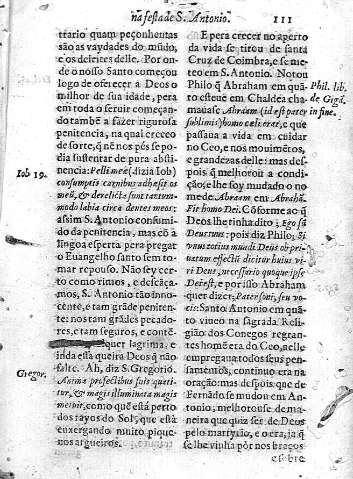 nã festa de S. Antonio.
111
trario quam peçonhentas
são as vaydades do mũdo,
e os deleites delle. Por on-
de o nosso Santo começou
logo de offerecer a Deos o
milhor de sua idade, pera
em toda o seruir começan-
do tambẽ a fazer rigurosa
penitencia, na qual creceo
de sorte, q̃ nẽ nos pés se po-
dia sustentar de pura absti-
nencia: Pelli meæ (dizia Iob)
Iob 19.
consumptis carnibus adhæsit os
meũ, & derelicta sunt tantum-
modo labia circa dentes meos:
assim S. Antonio consumi-
do da penitencia, mas cõ a
lingoa esperta pera pregar
o Euangelho santo sem to-
mar repouso. Não sey cer-
to como rimos, e descãça-
mos, S. Antonio tão inno-
cente, e tam grãde peniten-
te: nos tam grãdes pecado-
res, e tam seguros, e contẽ-
quer lagrima, e
inda essa queira Deos q̃ não
falte. Ah, diz S. Gregorio.
Gregor.
Anima profectibus suis quati-
tur, & magis illuminata magis
metuit, como que està perto
dos rayos do Sol, que està
enxergando muito pique-
nos argueiros.
E pera crecer no aperto
da vida se tirou de santa
Cruz de Coimbra, e se me-
teo em S. Antonio. Notou
Philo q̃ Abraham em quã-
Phil. lib.
to esteue em Chaldea cha-
de Gigã.
mauase Abram (id est pater
in fine.
sublimis) homo cæli erat, e que
passaua a vida em cuidar
no Ceo, e nos mouimẽtos,
e grandezas delle: mas des-
pois q̃ melhorou a condi-
ção, e lhe foy mudado o no
me de Abram em Abrahã.
Fit homo Dei. Cõforme ao q̃
Deos lhe tinha dito; Ego sũ
Deus tuus: pois diz Philo; Si
vnus totius mũdi Deus ob pri-
uatum effectũ dicitur huius vi-
ri Deus, necessario quoque ipse
Dei est, e por isso Abraham
quer dizer: Pater soni, seu vo-
cis: Santo Antonio em quã-
to viueo na sagrada Reli-
gião dos Conegos regran-
tes homẽ era do Ceo, nelle
empregaua todos seus pen-
samẽtos, continuo era na
oração: mas despois que de
Fernãdo se mudou em An-
tonio, melhorouse de ma-
neira que quiz ser de Deos
pelo martyrio, e o era, ja q̃
se lhe vinha pòr nos braços